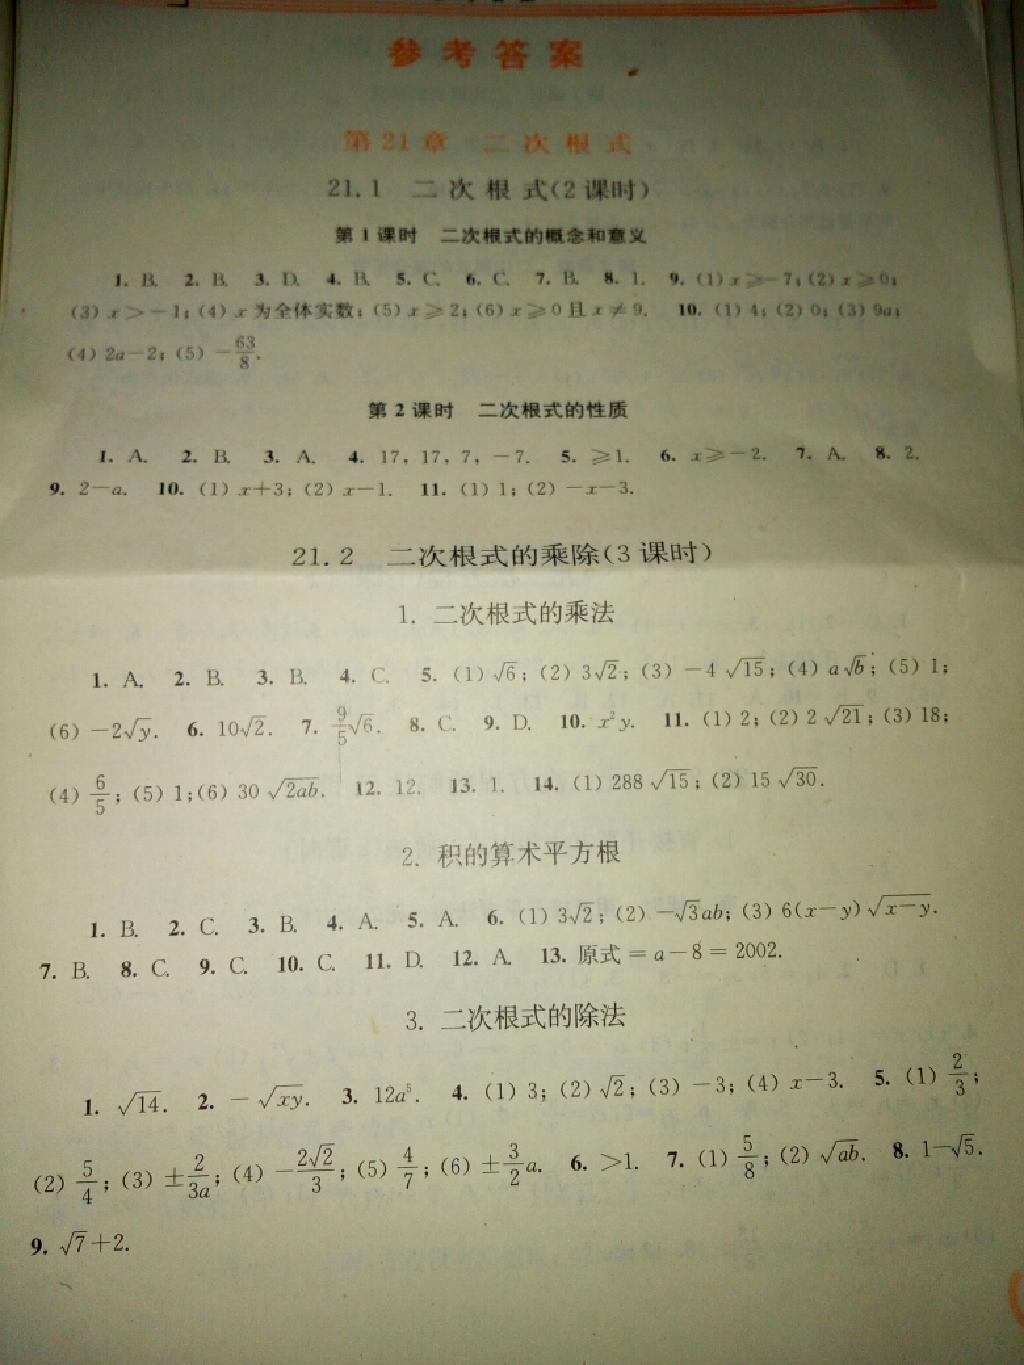 参考答案
第21章 二次根式
21.1 二次根式(2课时)
第1课时 二次根式的概念和意义
1. B. 2. B. 3. D. 4. B. 5. C. 6. C. 7. B. 8. 1. 9. (1) x⩾-7; (2) x⩾0;
(3) x>-1; (4) x为全体实数; (5) x⩾2; (6) x⩾0且x≠9. 10. (1) 4; (2) 0; (3) 9a;
(4) 2a-2; (5) -63/8.
第2课时 二次根式的性质
1. A. 2. B. 3. A. 4. 17, 17, 7, -7. 5. ⩾1. 6. x⩾-2. 7. A. 8. 2.
9. 2-a. 10. (1) x+3; (2) x-1. 11. (1) 1; (2) -x-3.
21.2 二次根式的乘除(3课时)
1. 二次根式的乘法
1. A. 2. B. 3. B. 4. C. 5. (1) √6; (2) 3√2; (3) -4√15; (4) a√b; (5) 1;
(6) -2√y. 6. 10√2. 7. 9/5√6. 8. C. 9. D. 10. x²y. 11. (1) 2; (2) 2√21; (3) 18;
(4) 6/5; (5) 1; (6) 30√(2ab). 12. 12. 13. 1. 14. (1) 288√15; (2) 15√30.
2. 积的算术平方根
1. B. 2. C. 3. B. 4. A. 5. A. 6. (1) 3√2; (2) -√3ab; (3) 6(x-y)√(x-y).
7. B. 8. C. 9. C. 10. C. 11. D. 12. A. 13. 原式=a-8=2002.
3. 二次根式的除法
1. √14. 2. -√(xy). 3. 12a⁵. 4. (1) 3; (2) √2; (3) -3; (4) x-3. 5. (1) 2/3;
(2) 5/4; (3) ±2/(3a); (4) -2√2/3; (5) 4/7; (6) ±3/2a. 6. >1. 7. (1) 5/8; (2) √(ab). 8. 1-√5.
9. √7+2.